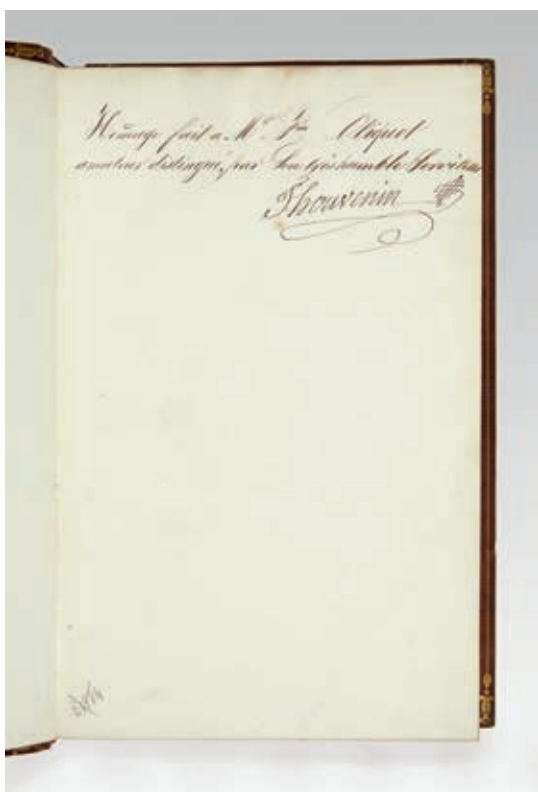 Homage fait a Mr. Cliquot
amateur distingué, par Son très humble Serviteur
Thouvenin